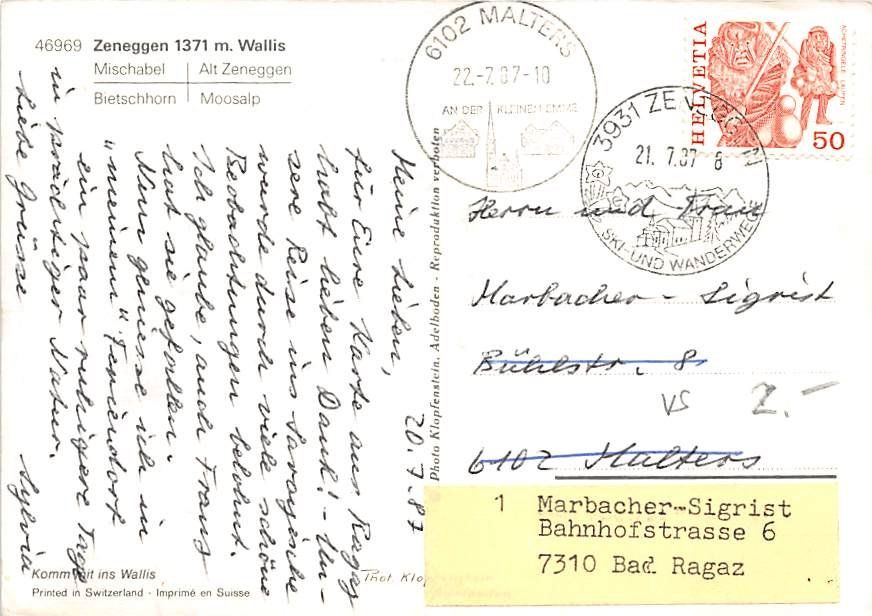 46969 Zeneggen 1371 m. Wallis
Mischabel Alt Zeneggen
Bietschhorn Moosalp
6102 MALTERS
22.-7.87-10
AN DER KLEINEN EMME
3931 ZENEGGEN
21. 7.87 8
SKI- UND WANDERWEG
HELVETIA
ACHETRINGELE LAUPEN
50
20.7.87
Meine Lieben,
für Eure Karte aus Ragaz
habt lieben Dank! - Un-
sere Reise ins Savoyische
wurde durch viele schöne
Beobachtungen belohnt.
Ich glaube, auch Franz
hat sie gefallen.
Nun geniesse ich in
"meinem" Feriendorf
ein paar ruhigere Tage
in prächtiger Natur.
Liebe Grüsse Sylvia
Photo Klopfenstein, Adelboden - Reproduktion verboten
Herrn und Frau
Marbacher - Sigrist
Bühlstr. 8
VS 2.-
6102 Malters
1 Marbacher-Sigrist
Bahnhofstrasse 6
7310 Bad Ragaz
Komm mit ins Wallis
Printed in Switzerland - Imprimé en Suisse